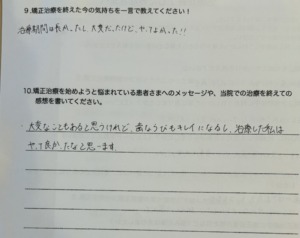 9.矯正治療を終えた今の気持ちを一言で教えてください！
治療期間は長かったし大変だったけど、やってよかった!!
10.矯正治療を始めようと悩まれている患者さまへのメッセージや、当院での治療を終えての
感想を書いてください。
大変なこともあると思うけれど、歯ならびもキレイになるし、治療した私は
やって良かったなと思います